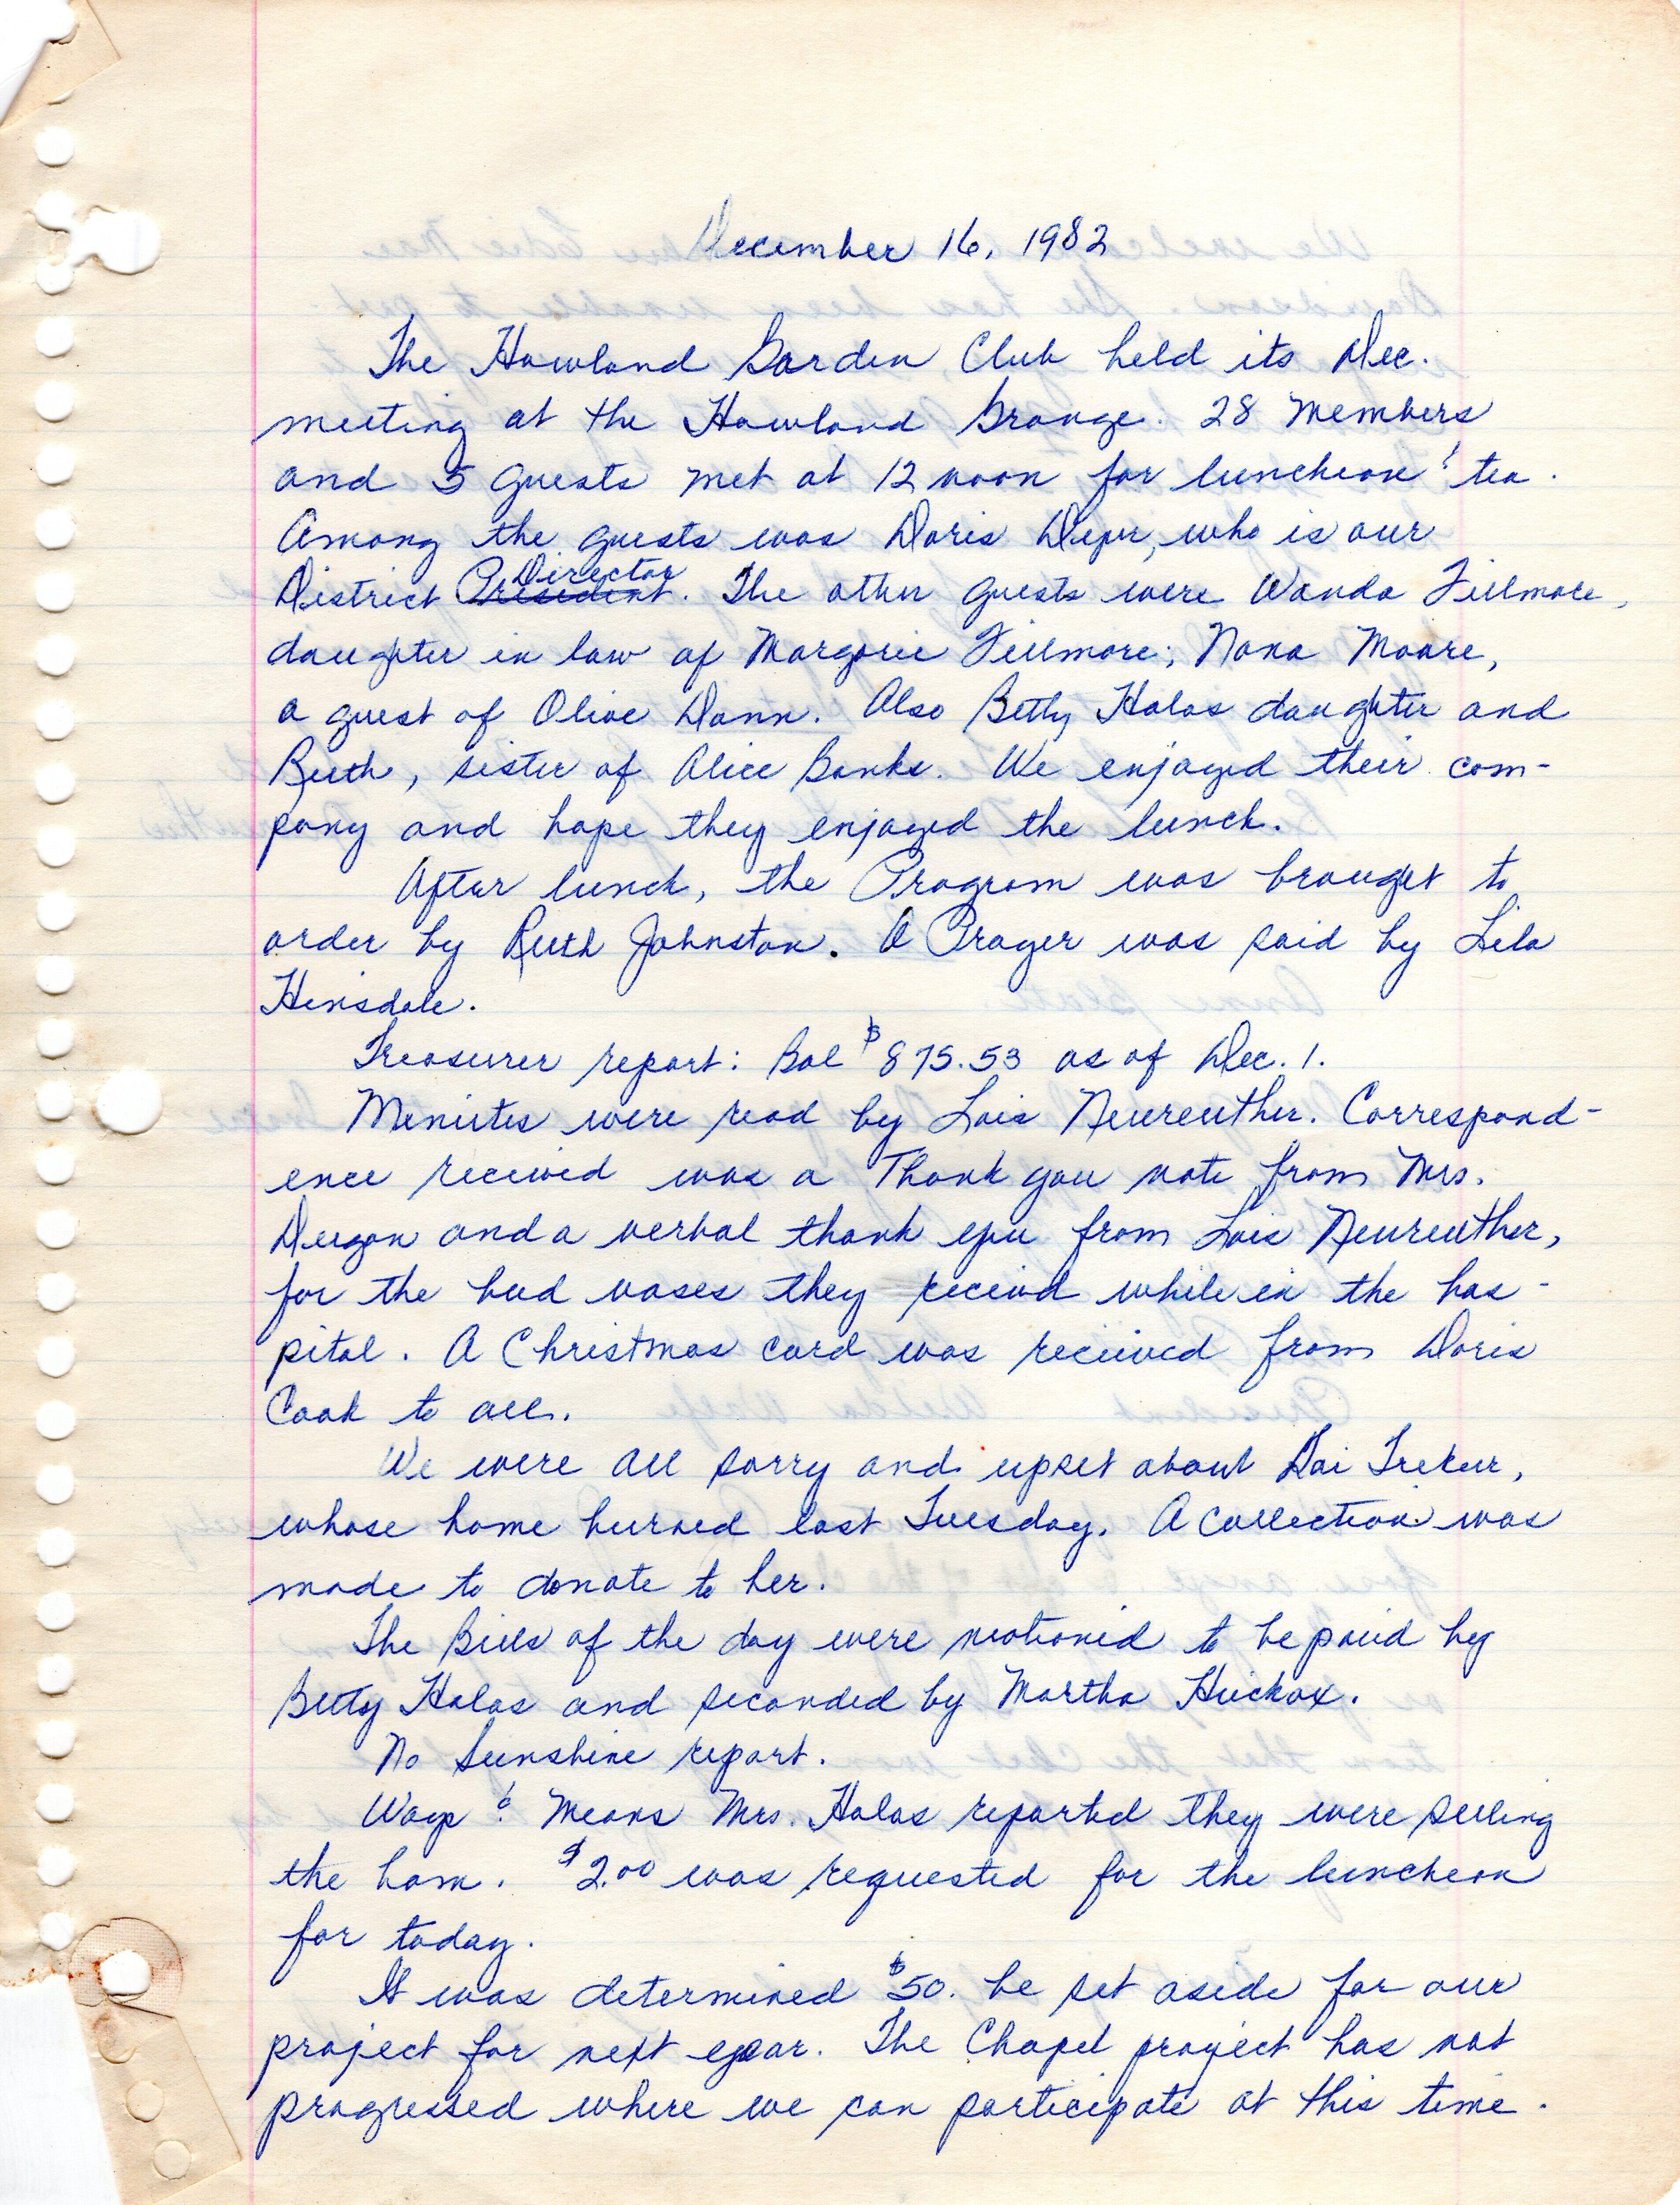 December 16, 1982
The Howland Garden Club held its Dec.
meeting at the Howland Grange. 28 Members
and 5 guests met at 12 noon for luncheon & tea.
Among the guests was Doris Depur, who is our
District President Director. The other guests were Wanda Fillmore,
daughter in law of Margorie Fillmore; Nona Moore,
a guest of Olive Dann. Also Betty Halas daughter and
Ruth, sister of Alice Banks. We enjoyed their com-
pany and hope they enjoyed the lunch.
After lunch, the Program was brought to
order by Ruth Johnston. A Prayer was said by Lela
Hinsdale.
Treasurer report: Bal $875.53 as of Dec. 1.
Minutes were read by Lois Neureuther. Correspond-
ence received was a Thank you note from Mrs.
and a verbal thank you from Lois Neureuther,
for the bud vases they receivd while in the hos-
pital. A Christmas card was received from Doris
Cook to all.
We were all sorry and upset about
whose home burned last Tuesday. A collection was
made to donate to her.
The Bills of the day were motioned to be paid by
Betty Halas and seconded by Martha Huckox.
No Sunshine report.
Ways & Means Mrs. Halas reported they were selling
the ham. $2.00 was requested for the luncheon
for today.
It was determined $50. be set aside for our
project for next year. The Chapel project has not
progressed where we can participate at this time.